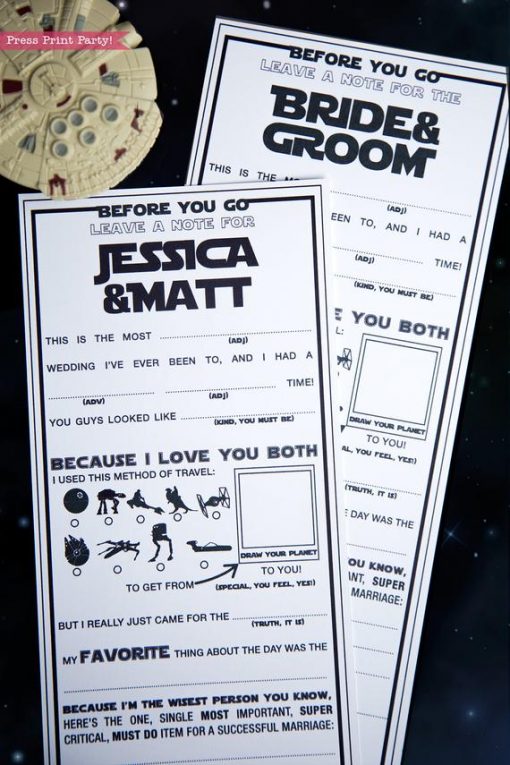 Press Print Party!
BEFORE YOU GO
LEAVE A NOTE FOR THE
BRIDE&
GROOM
THIS IS THE MOST
(ADJ)
BEEN TO, AND I HAD A
TIME!
(ADJ)
(KIND, YOU MUST BE)
YOU BOTH
DRAW YOUR PLANET
TO YOU!
(SPECIAL, YOU FEEL, YES!)
(TRUTH, IT IS)
THE DAY WAS THE
YOU KNOW,
IMPORTANT, SUPER
MARRIAGE:
BEFORE YOU GO
LEAVE A NOTE FOR
JESSICA
&MATT
THIS IS THE MOST
(ADJ)
WEDDING I'VE EVER BEEN TO, AND I HAD A
TIME!
(ADV) (ADJ)
YOU GUYS LOOKED LIKE
(KIND, YOU MUST BE)
BECAUSE I LOVE YOU BOTH
I USED THIS METHOD OF TRAVEL:
DRAW YOUR PLANET
TO GET FROM TO YOU!
(SPECIAL, YOU FEEL, YES!)
BUT I REALLY JUST CAME FOR THE
(TRUTH, IT IS)
MY FAVORITE THING ABOUT THE DAY WAS THE
BECAUSE I'M THE WISEST PERSON YOU KNOW,
HERE'S THE ONE, SINGLE MOST IMPORTANT, SUPER
CRITICAL, MUST DO ITEM FOR A SUCCESSFUL MARRIAGE: